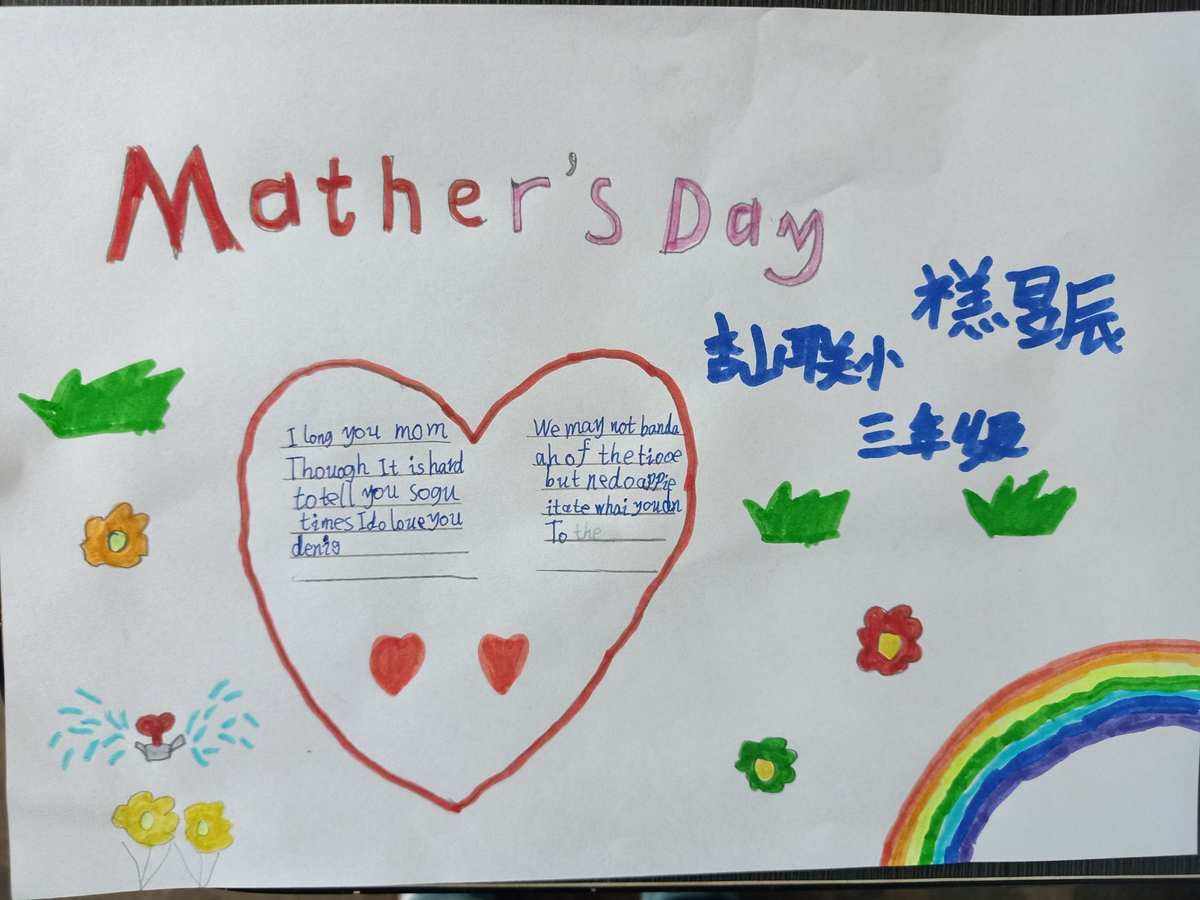 Mather's Day
糕昱辰
三年级
I long you mom
Though It is hard
to tell you sogu
times I do loue you
denig
We may not banda
ah of the tiooe
but nedoappie
itate whai you
To the